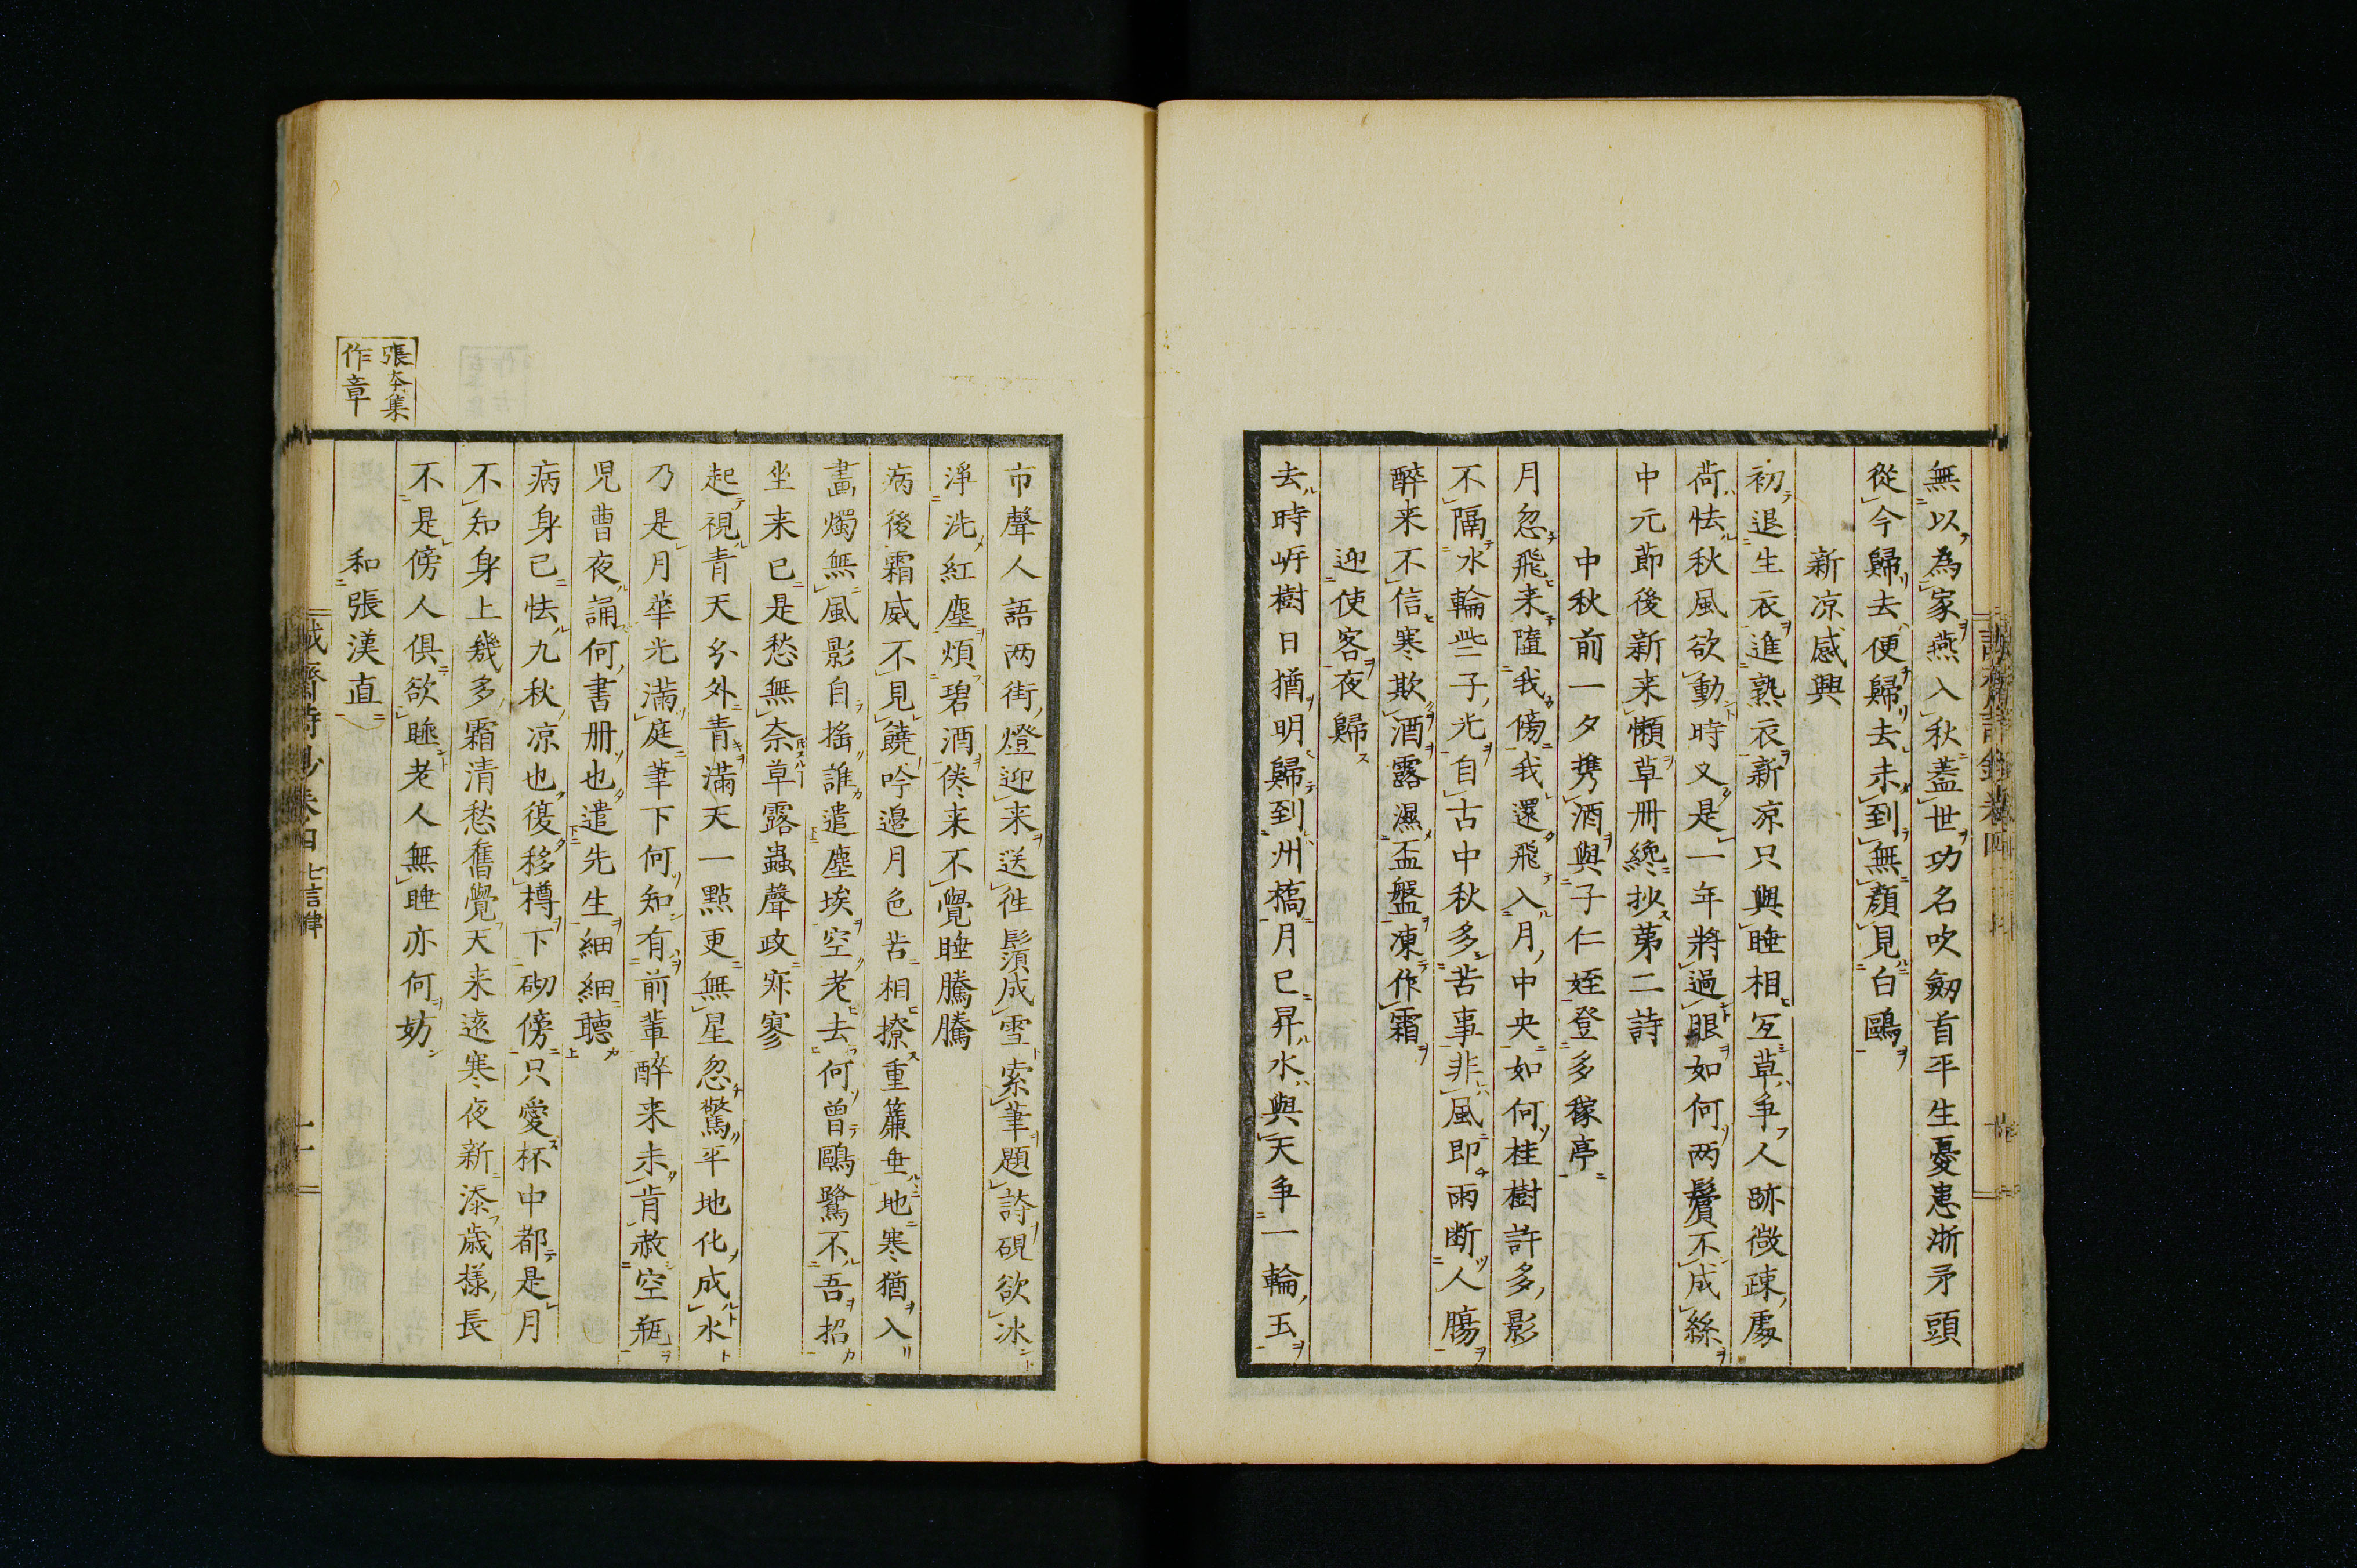 無以為家燕入秋蓋世功名吹劔首平生憂患淅矛頭
從今歸去便歸去未到無顏見白鷗
新凉感興
初退生衣進熟衣新凉只與睡相冝草争人跡微疎處
荷怯秋風欲動時又是一年將過眼如何两鬢不成絲
中元節後新来懶草冊纔抄苐二詩
中秋前一夕携酒與子仁姪登多稼亭
月忽飛来墮我傍我還飛入月中央如何桂樹許多影
不隔水輪些子光自古中秋多苦事非風即雨断人膓
醉来不信寒欺酒露濕盃盤凍作霜
迎使客夜歸
去時㟁樹日猶明歸到州橋月已昇水與天争一輪玉
市聲人語两街燈迎来送徃鬚成雪索筆題詩硯欲冰
淨洗紅塵煩碧酒倦来不覺睡騰騰
病後霜威不見饒吟邊月色苦相撩重簾垂地寒猶入
畫燭無風影自搖誰遣塵埃空老去何曾鷗鷺不吾招
坐来已是愁無奈草露蟲聲政寂寥
起視青天分外青滿天一點更無星忽驚平地化成水
乃是月華光滿庭筆下何知有前輩醉来未肯赦空瓶
児曹夜誦何書册也遣先生細細聽
病身已怯九秋凉也復移樽下砌傍只愛杯中都是月
不知身上幾多霜清愁舊覺天来遠寒夜新添歳樣長
不是傍人俱欲睡老人無睡亦何妨
和張漢直
張本集
作章
誠齋詩鈔卷四 七言律 十一